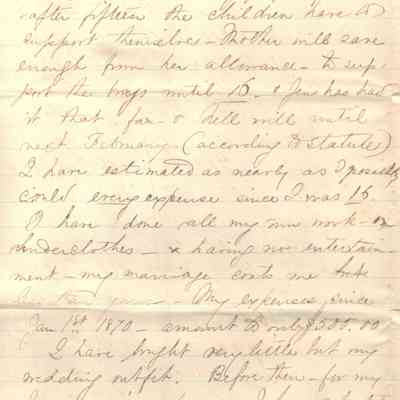 after fifteen the children have to
support themselves - Mother will save
enough from her allowance - to sup-
port the boys until 16. & Jen has had
it that far - & Nell will until
next February. (according to statute)
I have estimated as nearly as I possibly
could every expense since I was 16
I have done all my own work - on
underclothes - & having no entertain-
ment - my marriage costs me but
than yours - My expenses since
Jan 1st 1870 - amount to only $505.00
I have bought very little but my
wedding outfit. Before then - for my